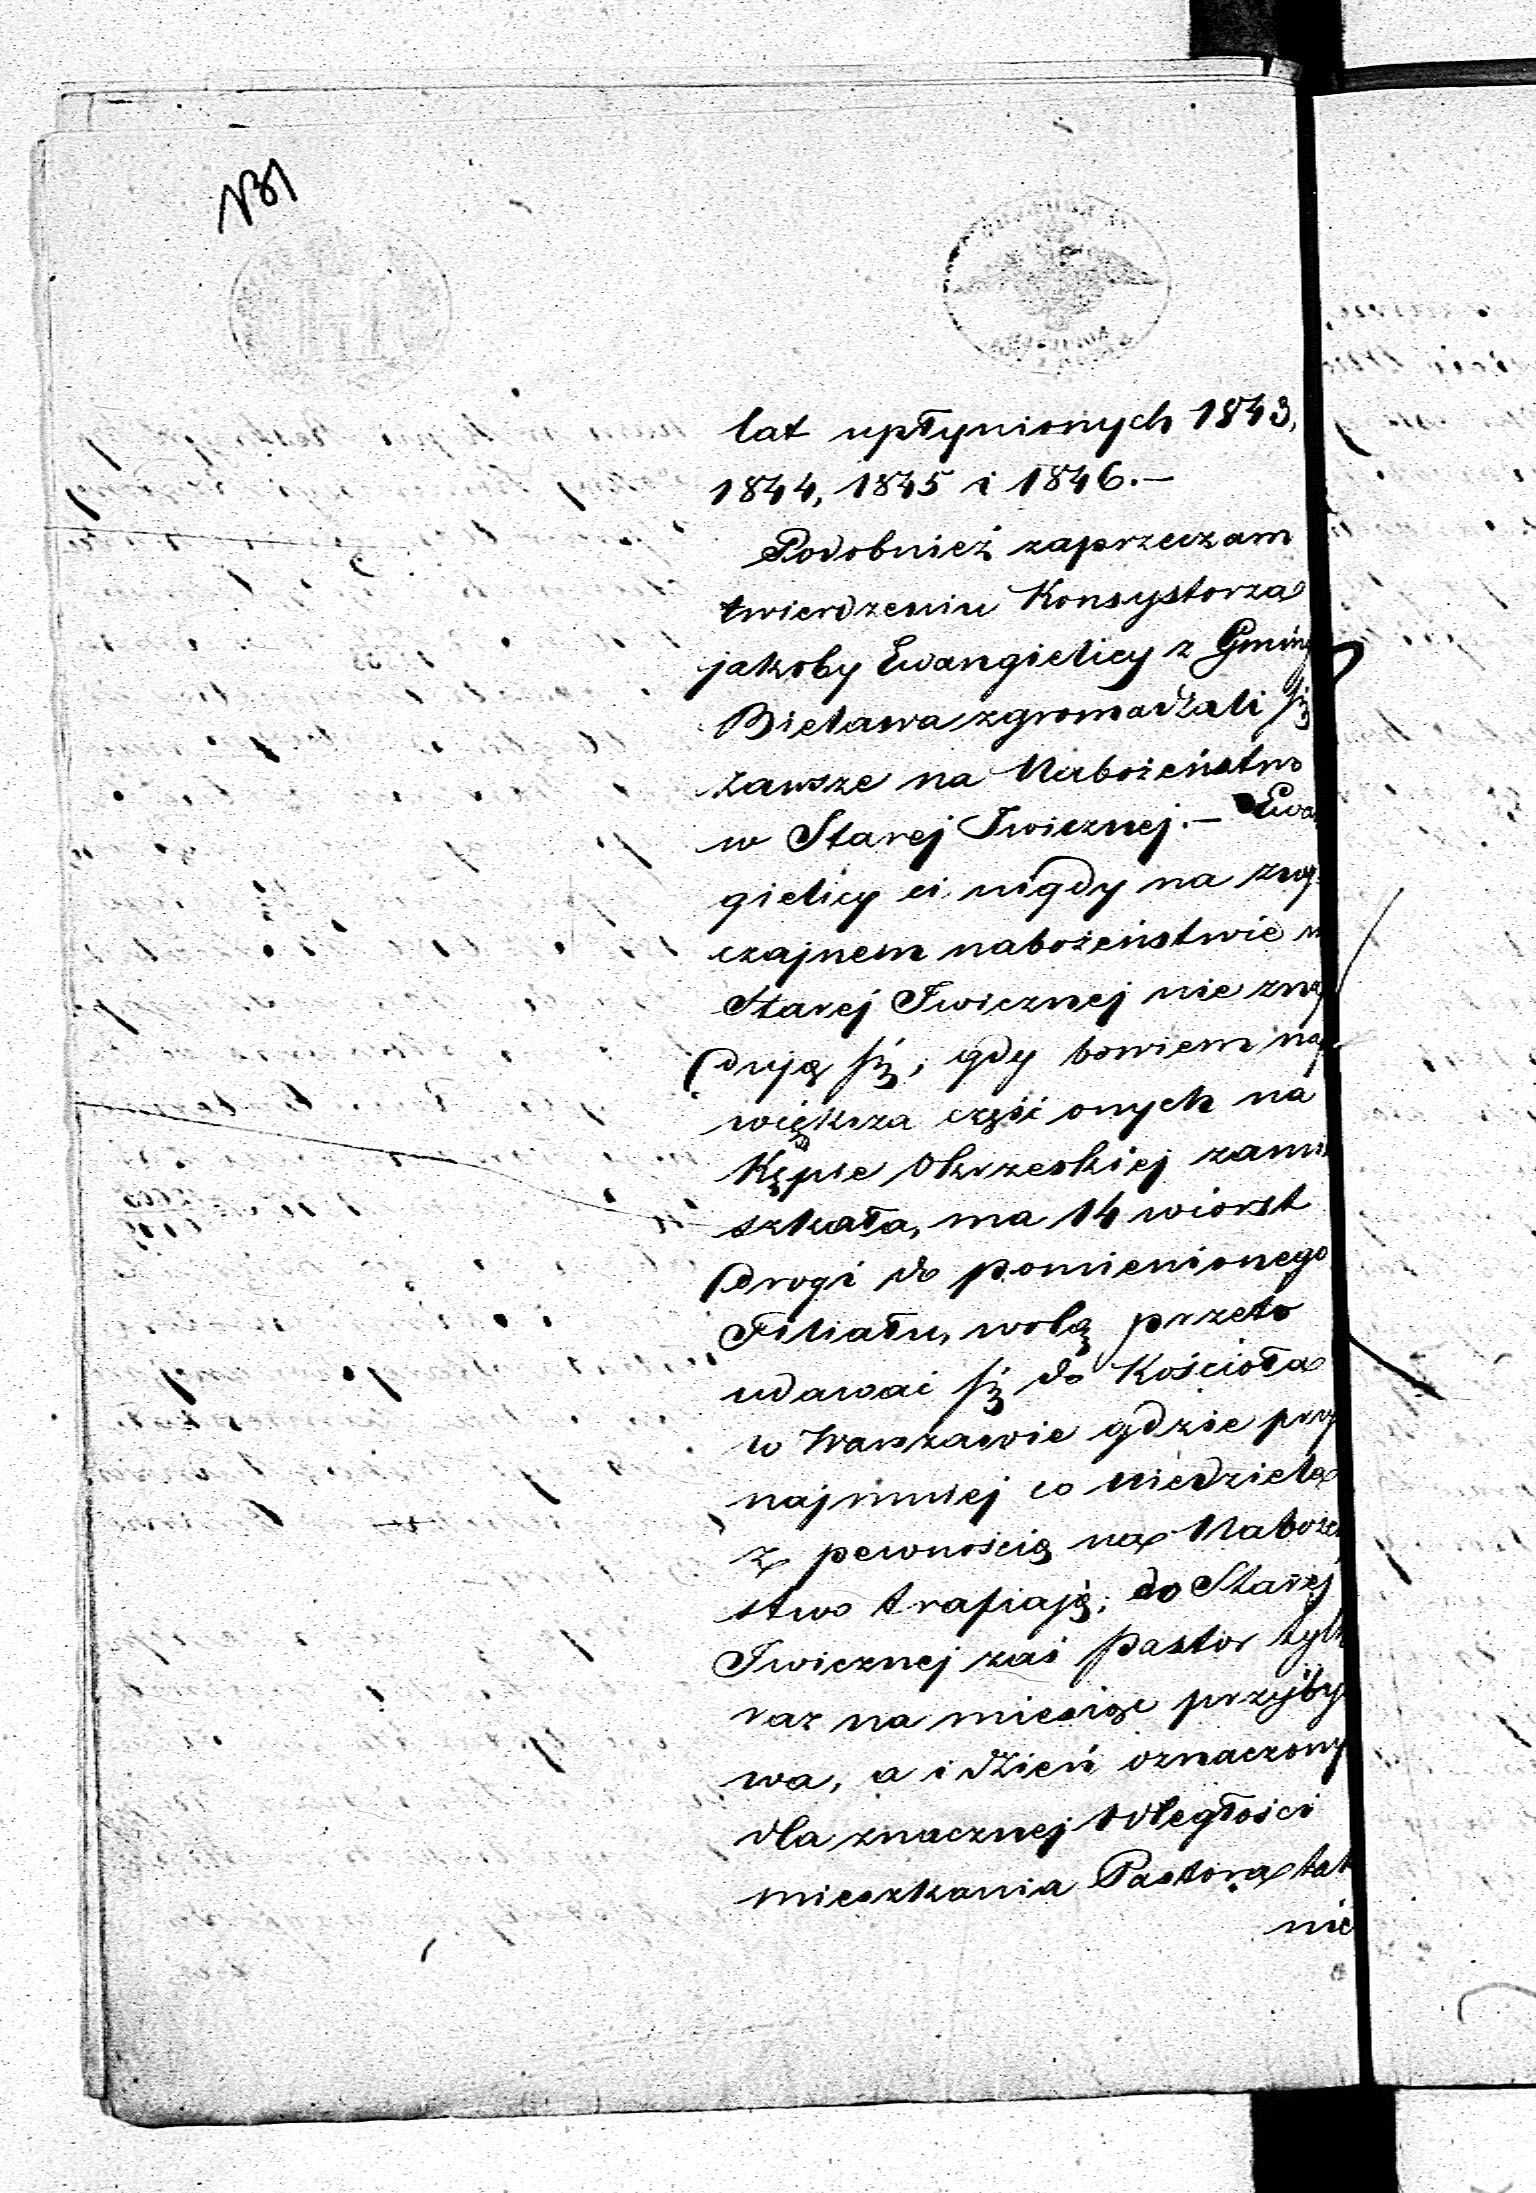 lat upłynionych 1843,
1844, 1845 i 1846.—
Podobnież zaprzeczam
twierdzeniu Konsystorza
jakoby Ewangielicy z Gminy
Bielawa zgromadzali się
zawsze na Nabożeństwo
w Starej Iwicznej.— Ewa
gielicy ci nigdy na zwy
czajnem nabożeństwie w
Starej Iwicznej nie znaj
dują się, gdy bowiem naj
większa część onych na
Kępie Okrzeskiej zamie
szkała, ma 14 wiorst
drogi do pomienionego
Filiału, wolą przeto
udawać się do Kościoła
w Warszawie gdzie przy
najmniej co niedziela
z pewnością na Nabożeń
stwo trafiają; do Starej
Iwicznej zaś Pastor tylk
raz na miesiąc przyby
wa, a i dzień oznaczony
dla znacznej odległości
mieszkania Pastora tak
nie